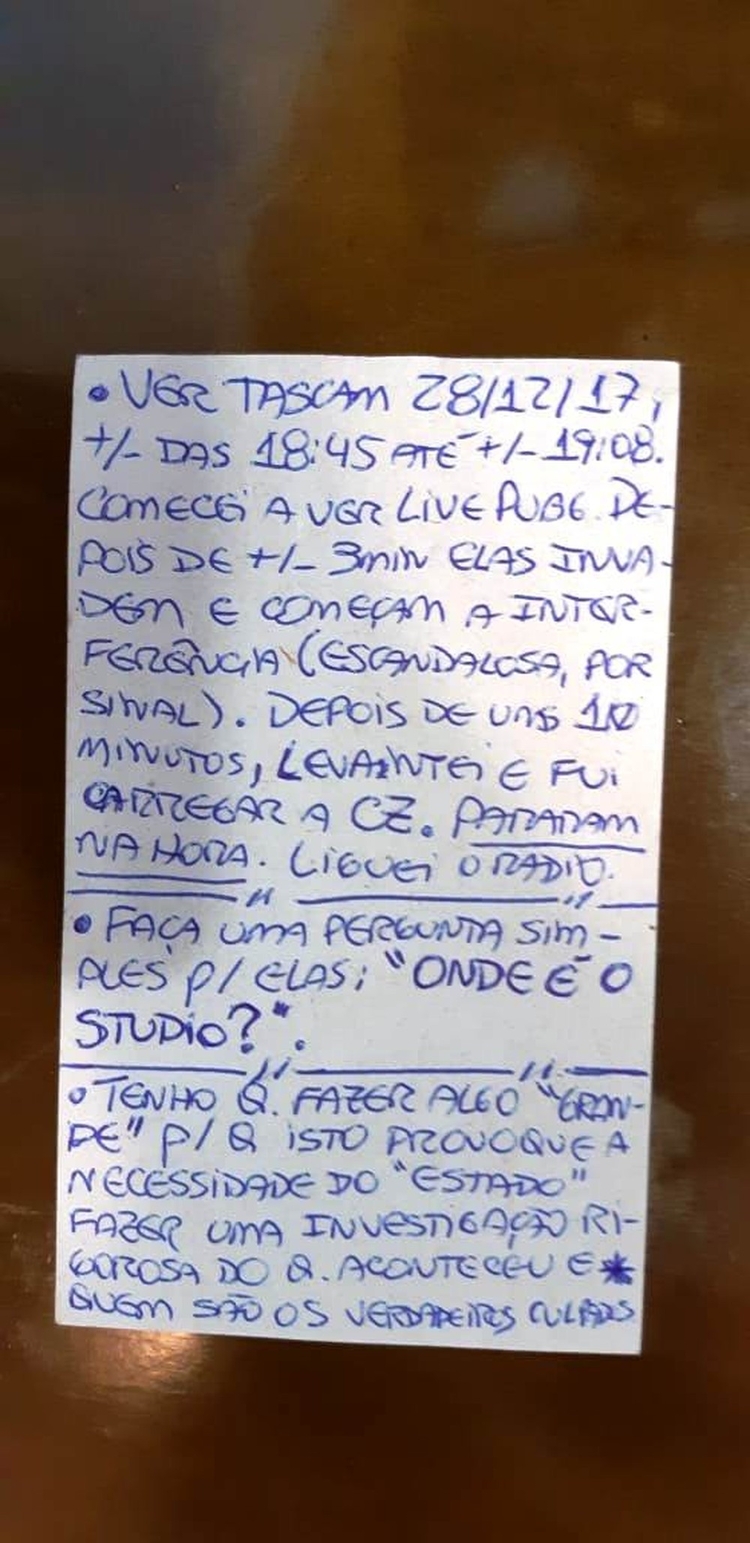 • VER TASCAM 28/12/17,
+/- DAS 18:45 ATÉ +/- 19:08.
COMECEI A VER LIVE PUBG. DE-
POIS DE +/- 3min ELAS INVA-
DEM E COMEÇAM A INTER-
FERÊNCIA (ESCANDALOSA, POR
SINAL). DEPOIS DE UNS 10
MINUTOS, LEVANTEI E FUI
CARREGAR A CZ. PARARAM
NA HORA. LIGUEI O RADIO.
• FAÇA UMA PERGUNTA SIM-
PLES P/ ELAS: "ONDE É O
STUDIO?".
• TENHO Q. FAZER ALGO "GRAN-
DE" P/ Q ISTO PROVOQUE A
NECESSIDADE DO "ESTADO"
FAZER UMA INVESTIGAÇÃO RI-
GOROSA DO Q. ACONTECEU E *
QUEM SÃO OS VERDADEIROS CULPADOS